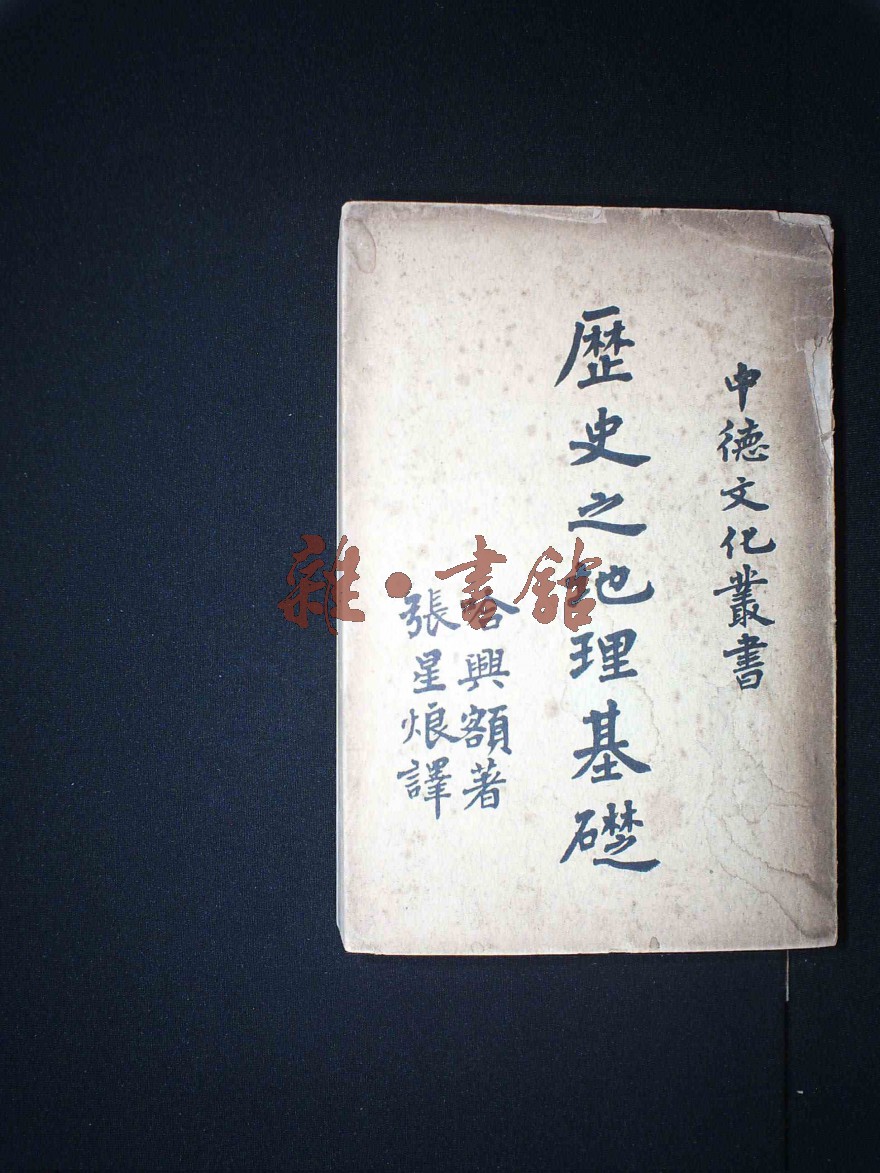 中德文化叢書
歷史之地理基礎
哈興額著
張星烺譯
雜·書館